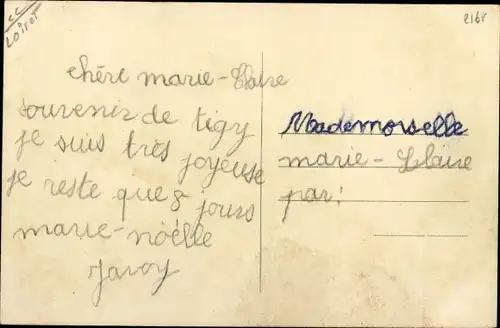 cc
Loiret
2168
chére marie-Claire
souvenir de tigy
je suis très joyeuse
je reste que 8 jours
marie-noëlle
Javoy
Mademorselle
marie-Claire
par: